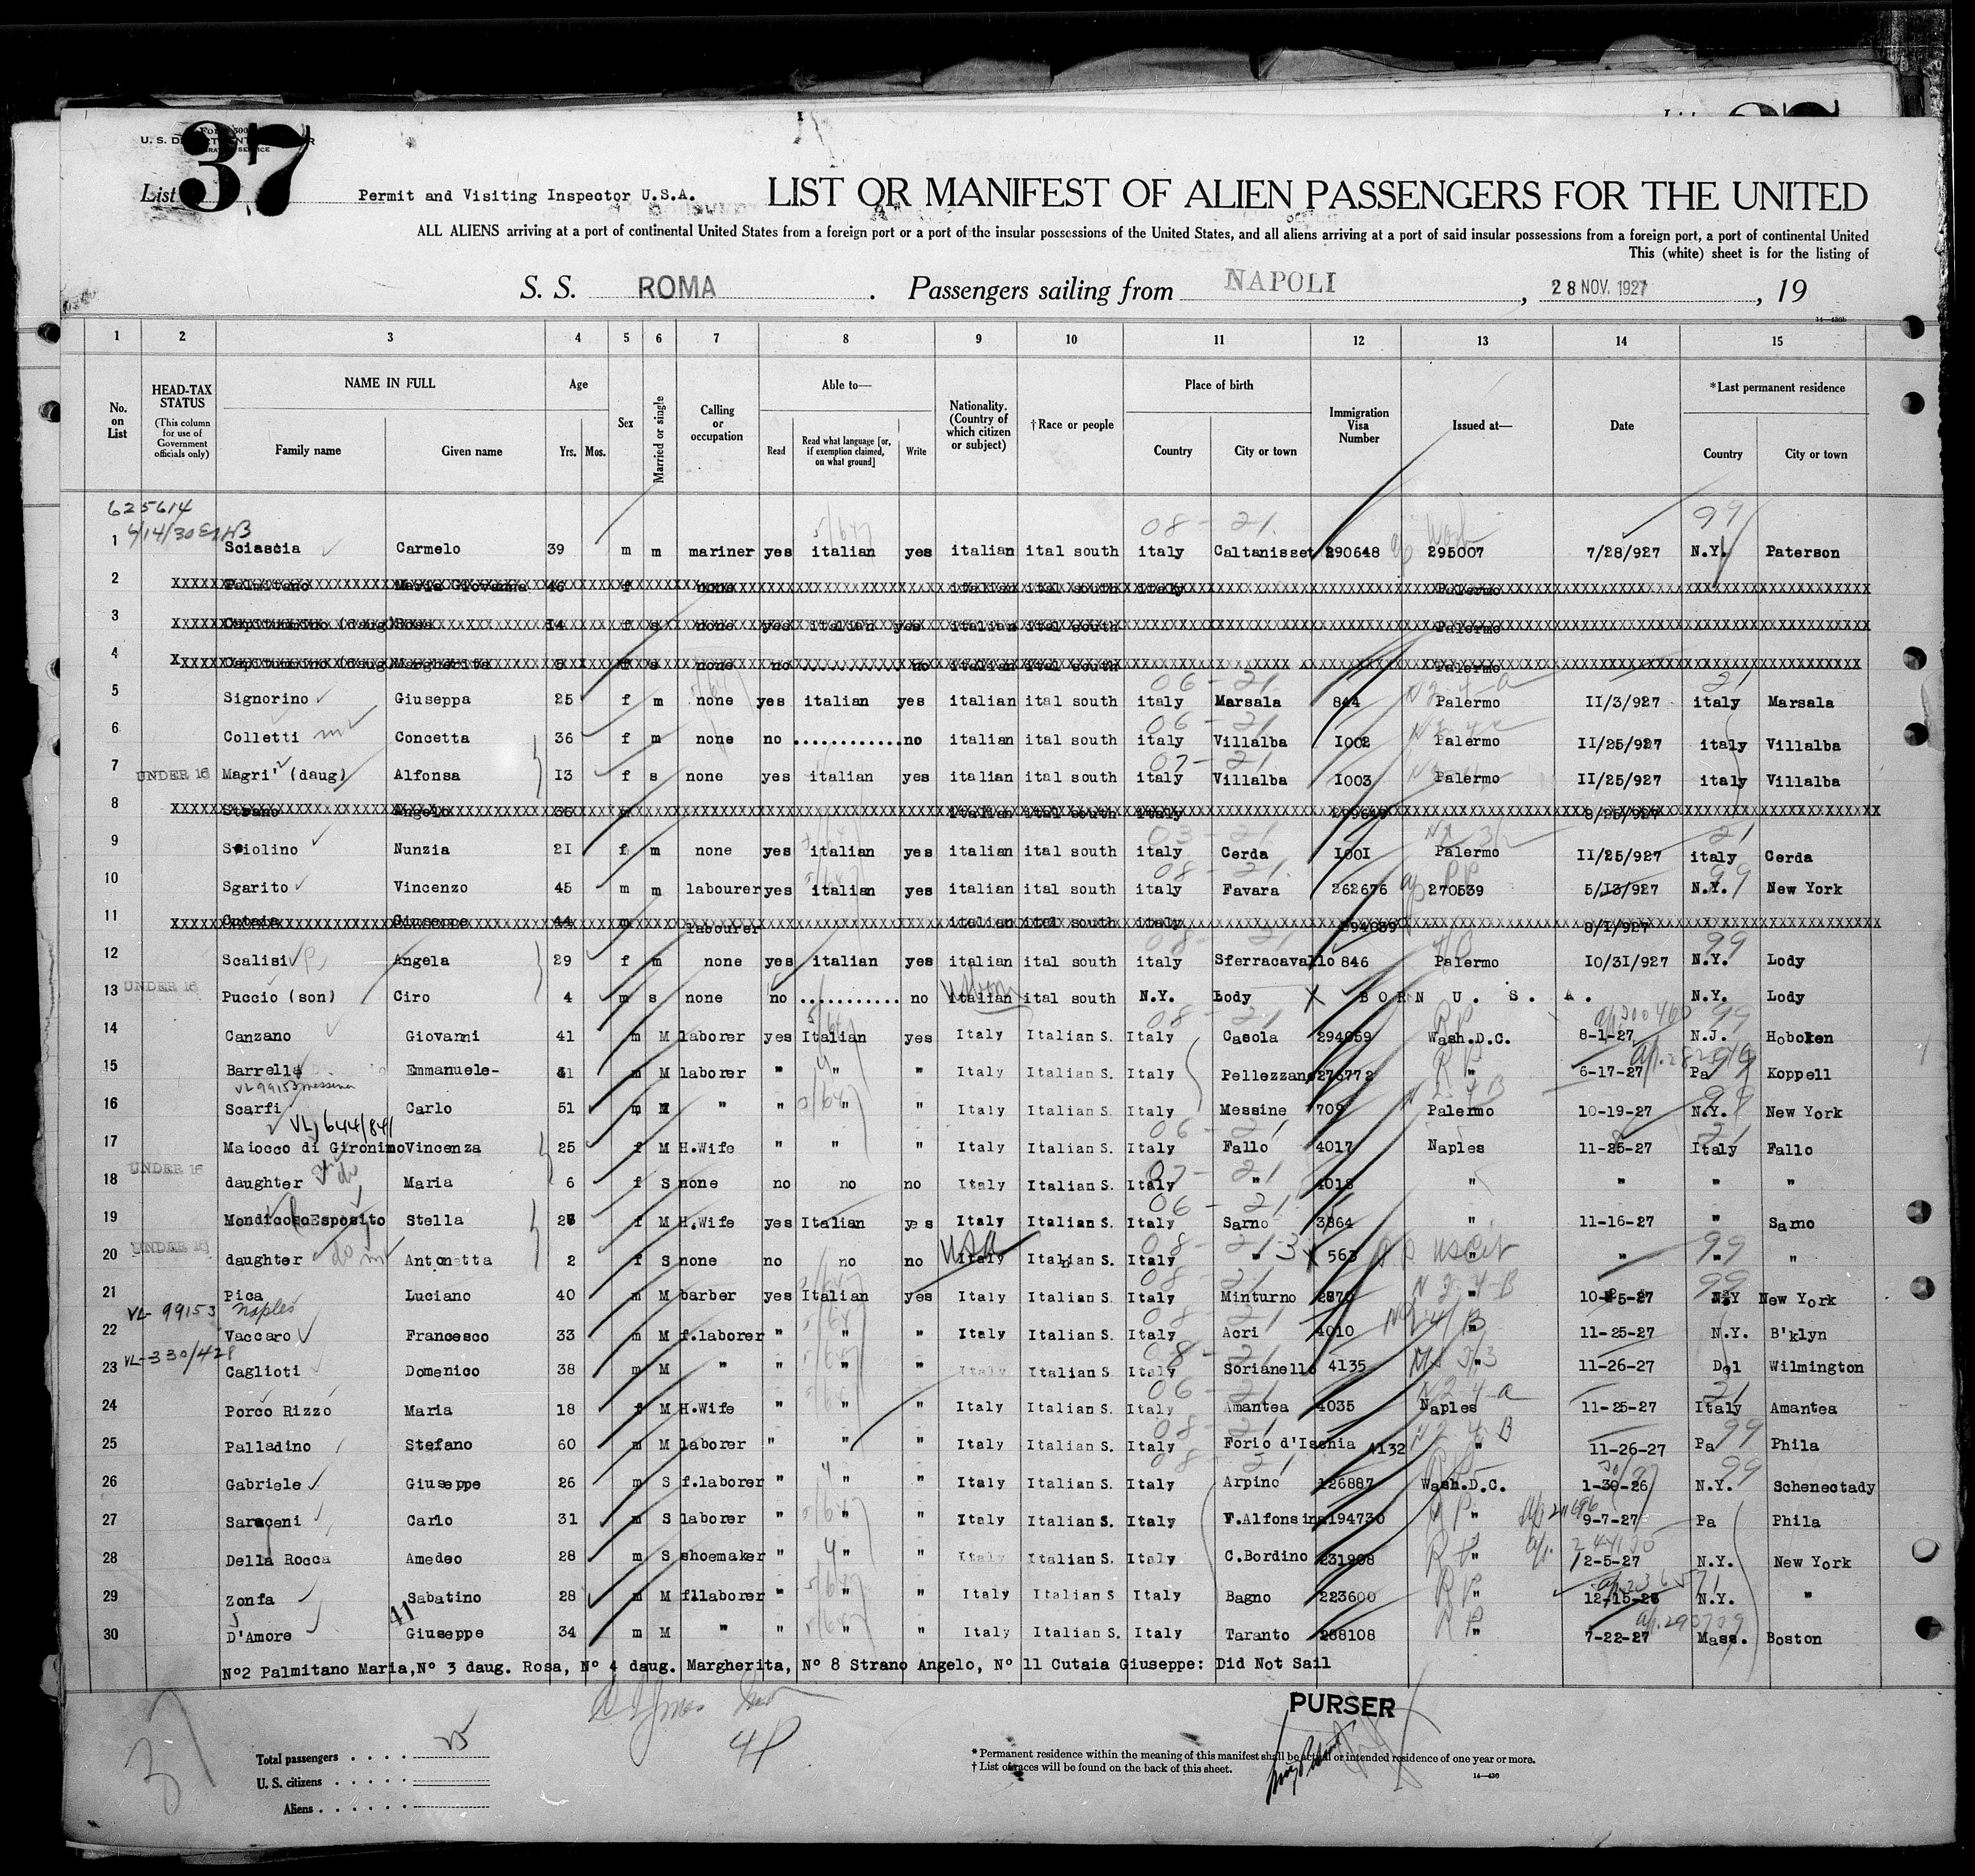 37
List
U. S. DEPARTMENT
Permit and Visiting Inspector U.S.A.
LIST OR MANIFEST OF ALIEN PASSENGERS FOR THE UNITED
ALL ALIENS arriving at a port of continental United States from a foreign port or a port of the insular possessions of the United States, and all aliens arriving at a port of said insular possessions from a foreign port, a port of continental United
This (white) sheet is for the listing of
S. S. ROMA . Passengers sailing from NAPOLI , 28 NOV. 1927 , 19
1 2 3 4 5 6 7 8 9 10 11 12 13 14 15
No. on List HEAD-TAX STATUS (This column for use of Government officials only) NAME IN FULL Family name Given name Age Yrs. Mos. Sex Married or single Calling or occupation Able to— Read Read what language [or, if exemption claimed, on what ground] Write Nationality. (Country of which citizen or subject) †Race or people Place of birth Country City or town Immigration Visa Number Issued at— Date *Last permanent residence Country City or town
625614
08 - 21. 99
1 Sciascia Carmelo 39 m m mariner yes italian yes italian ital south italy Caltanisset 290648 295007 7/28/927 N.Y. Paterson
2 Palmitano Maria Giovanna 46 f none italian ital south italy Palermo
3 Rosa 14 f s none yes italian yes italian ital south Palermo
4 Margherita f s none no no italian ital south Palermo
5 Signorino Giuseppa 25 f m none yes italian yes italian ital south italy Marsala 844 Palermo II/3/927 italy Marsala
6 Colletti Concetta 36 f m none no ............ no italian ital south italy Villalba I002 Palermo II/25/927 italy Villalba
7 UNDER 16 Magri' (daug) Alfonsa I3 f s none yes italian yes italian ital south italy Villalba I003 Palermo II/25/927 italy Villalba
8 Strano Angelo 35 m italian ital south italy 299649 8/25/927
9 Sciolino Nunzia 2I f m none yes italian yes italian ital south italy Cerda I00I Palermo II/25/927 italy Cerda
10 Sgarito Vincenzo 45 m m labourer yes italian yes italian ital south italy Favara 262676 270539 5/13/927 N.Y. New York
11 Cutaia Giuseppe 44 m labourer italian ital south italy 294639 8/1/927
12 Scalisi Angela 29 f m none yes italian yes italian ital south italy Sferracavallo 846 Palermo IO/3I/927 N.Y. Lody
13 UNDER 16 Puccio (son) Ciro 4 m s none no ............ no italian ital south N.Y. Lody BORN U. S. A. N.Y. Lody
14 Canzano Giovanni 41 m M laborer yes Italian yes Italy Italian S. Italy Casola 294059 Wash.D.C. 8-1-27 N.J. Hoboken
15 Barrella Emmanuele- 41 m M laborer " " " Italy Italian S. Italy Pellezzano 276772 " 6-17-27 Pa Koppell
16 Scarfi Carlo 51 m M " " " " Italy Italian S. Italy Messine 709 Palermo 10-19-27 N.Y. New York
VL 644/841
17 Maiocco di Gironimo Vincenza 25 f M H.Wife " " " Italy Italian S. Italy Fallo 4017 Naples 11-25-27 Italy Fallo
18 UNDER 16 daughter Maria 6 f S none no no no Italy Italian S. Italy " 4018 " " " "
19 Mondicoso Esposito Stella 26 f M H.Wife yes Italian yes Italy Italian S. Italy Sarno 3864 " 11-16-27 " Sarno
20 UNDER 16 daughter Antonetta 2 f S none no no no Italy Italian S. Italy " 563 " " " "
21 Pica Luciano 40 m M barber yes Italian yes Italy Italian S. Italy Minturno 2870 " 10-25-27 N.Y New York
VL- 99153 Naples
22 Vaccaro Francesco 33 m M f.laborer " " " Italy Italian S. Italy Acri 4010 " 11-25-27 N.Y. B'klyn
VL-330/428
23 Caglioti Domenico 38 m M " " " " Italy Italian S. Italy Sorianello 4135 " 11-26-27 Del Wilmington
24 Porco Rizzo Maria 18 f M H.Wife " " " Italy Italian S. Italy Amantea 4035 Naples 11-25-27 Italy Amantea
25 Palladino Stefano 60 m M laborer " " " Italy Italian S. Italy Forio d'Ischia 4132 " 11-26-27 Pa Phila
26 Gabriele Giuseppe 26 m S f.laborer " " " Italy Italian S. Italy Arpino 126887 Wash.D.C. 1-30-26 N.Y. Schenectady
27 Saraceni Carlo 31 m S laborer " " " Italy Italian S. Italy F.Alfonsina 194730 " 9-7-27 Pa Phila
28 Della Rocca Amedeo 28 m S shoemaker " " " Italy Italian S. Italy C.Bordino 231908 " 12-5-27 N.Y. New York
29 Zonfa Sabatino 28 m M fllaborer " " " Italy Italian S Italy Bagno 223600 " 12-15-26 N.Y. "
30 D'Amore Giuseppe 34 m M " " " " Italy Italian S. Italy Taranto 288108 " 7-22-27 Mass. Boston
Nº2 Palmitano Maria,Nº 3 daug. Rosa, Nº 4 daug. Margherita, Nº 8 Strano Angelo, Nº 11 Cutaia Giuseppe: Did Not Sail
PURSER
37
Total passengers . . . . 25
U. S. citizens . . . . .
Aliens . . . . . .
* Permanent residence within the meaning of this manifest shall be actual or intended residence of one year or more.
† List of races will be found on the back of this sheet.